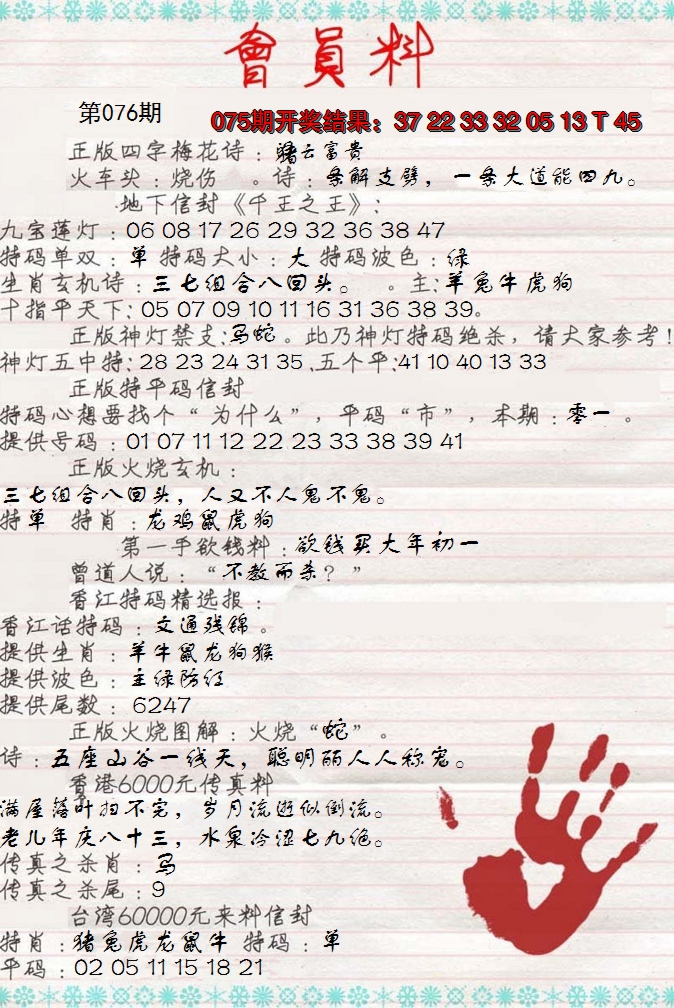 會員料
第076期
075期开奖结果：37 22 33 32 05 13 T 45
正版四字梅花诗：猪云富贵
火车头：烧伤 。诗：条解支劈，一条大道能四九。
地下信封《千王之王》：
九宝莲灯：06 08 17 26 29 32 36 38 47
特码单双：单 特码大小：大 特码波色：绿
生肖玄机诗：三七组合八回头。 。主：羊兔牛虎狗
十指平天下：05 07 09 10 11 16 31 36 38 39。
正版神灯禁支：马蛇。此乃神灯特码绝杀，请大家参考！
神灯五中特：28 23 24 31 35 .五个平：41 10 40 13 33
正版特平码信封
特码心想要找个“为什么”，平码“市”，本期：零一 。
提供号码：01 07 11 12 22 23 33 38 39 41
正版火烧玄机：
三七组合八回头，人又不人鬼不鬼。
特单 特肖：龙鸡鼠虎狗
第一手欲钱料：欲钱买大年初一
曾道人说：“不教而杀？”
香江特码精选报：
香江话特码：文通残锦。
提供生肖：羊牛鼠龙狗猴
提供波色：主绿防红
提供尾数：6247
正版火烧图解：火烧“蛇”。
诗：五座山谷一线天，聪明丽人人称宠。
香港6000元传真料
满屋落叶扫不完，岁月流逝似倒流。
老儿年庆八十三，水泉冷涩七九绝。
传真之杀肖：马
传真之杀尾：9
台湾60000元来料信封
特肖：猪兔虎龙鼠牛 特码：单
平码：02 05 11 15 18 21